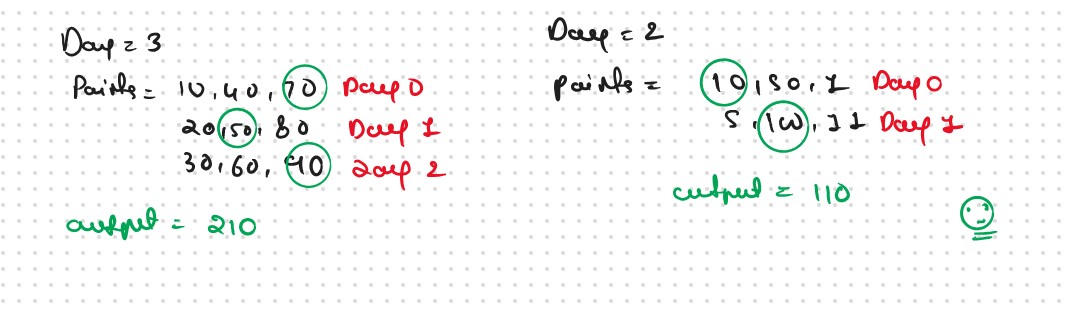 Day = 3
Points = 10, 40, 70 Day 0
20, 50, 80 Day 1
30, 60, 90 Day 2
output = 210
Day = 2
points = 10, 50, 1 Day 0
5, 100, 11 Day 1
output = 110